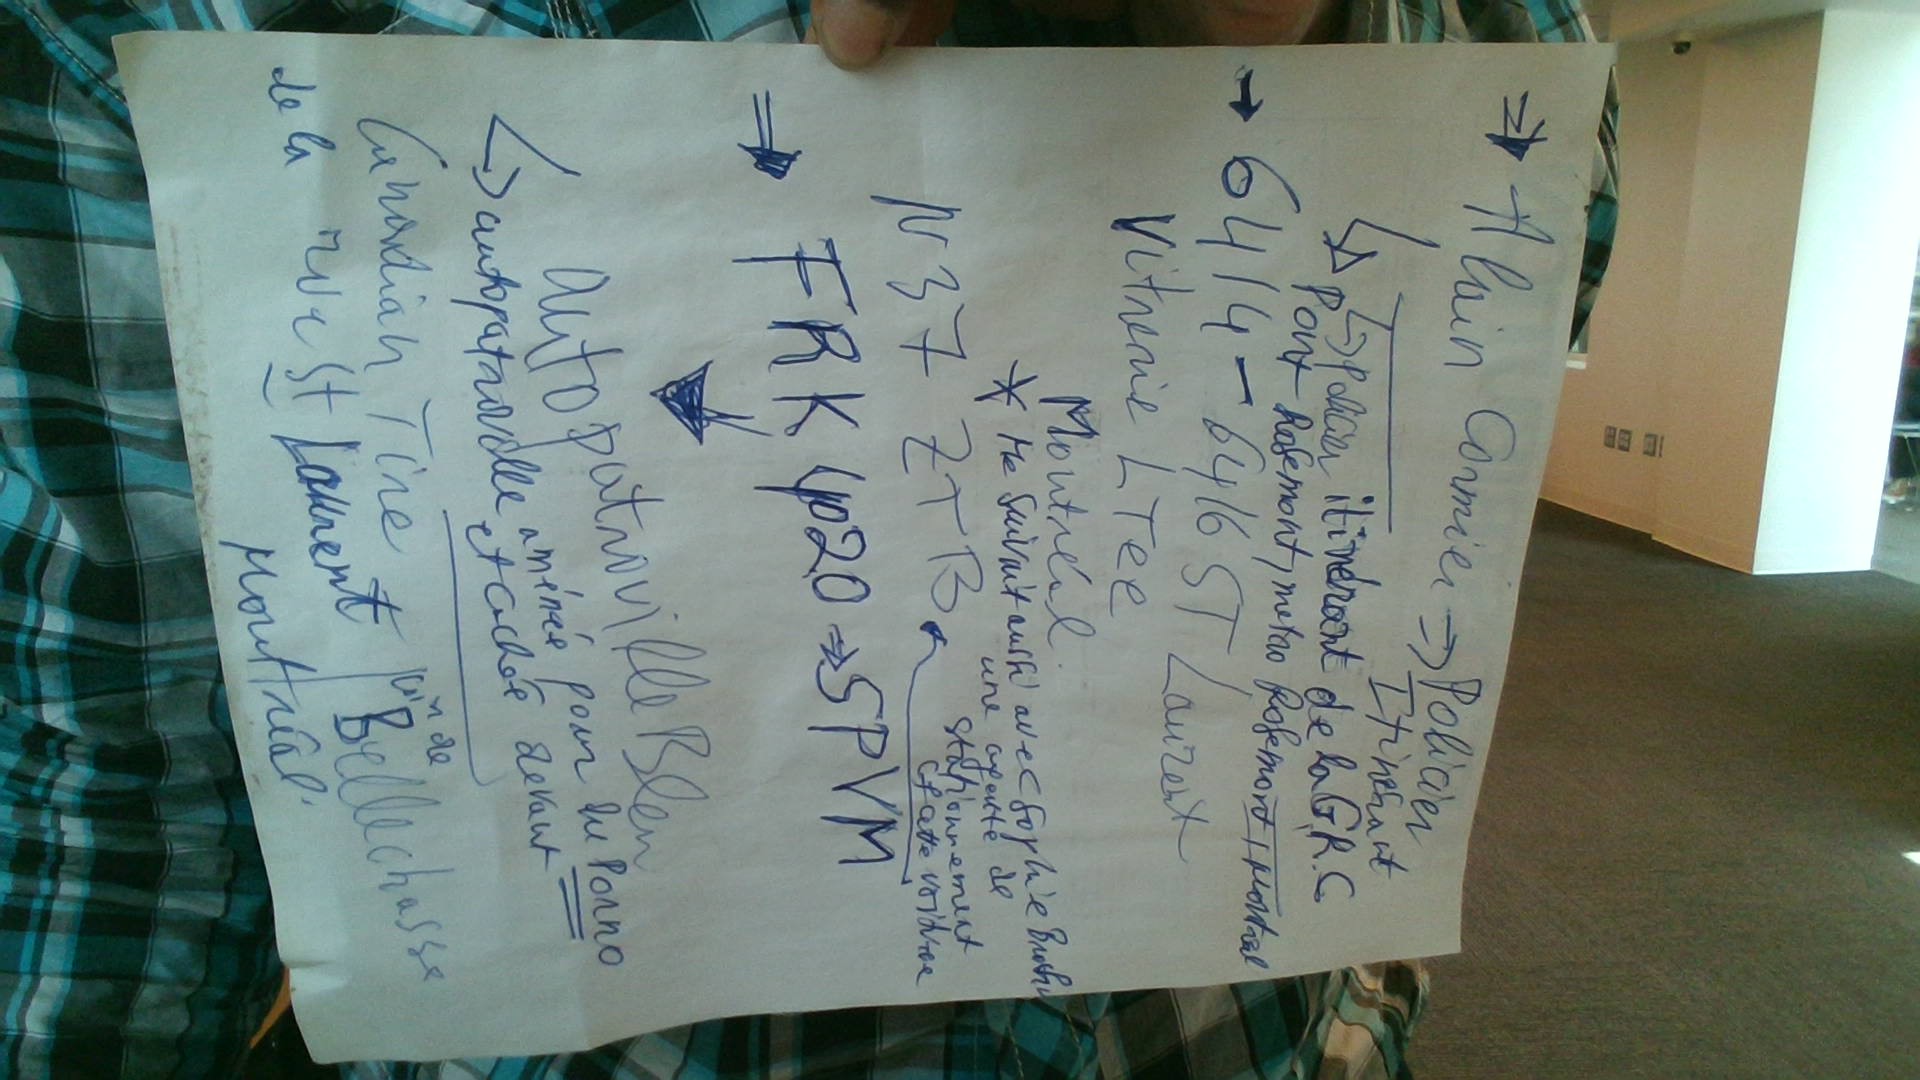 ⇒ Alain Cormier → Policier
Itinérant
↳ policier itinérant de la G.R.C
↳ Pont-Rosemont, metro Rosemont, Montréal
→ 6414-6416 ST Laurent
Vitrerie LTEE
Montréal.
* Me Suivait aussi avec Sophie
une agente de
stationnement
cette voiture
N37 ZTB
⇒ FRK 4020 → SPVM
autopatrouille Bleu
↳ autopatrouille amenée pour du Porno
et cachée devant
Canadian Tire coin de Bellechasse
de la rue St Laurent
Montréal.